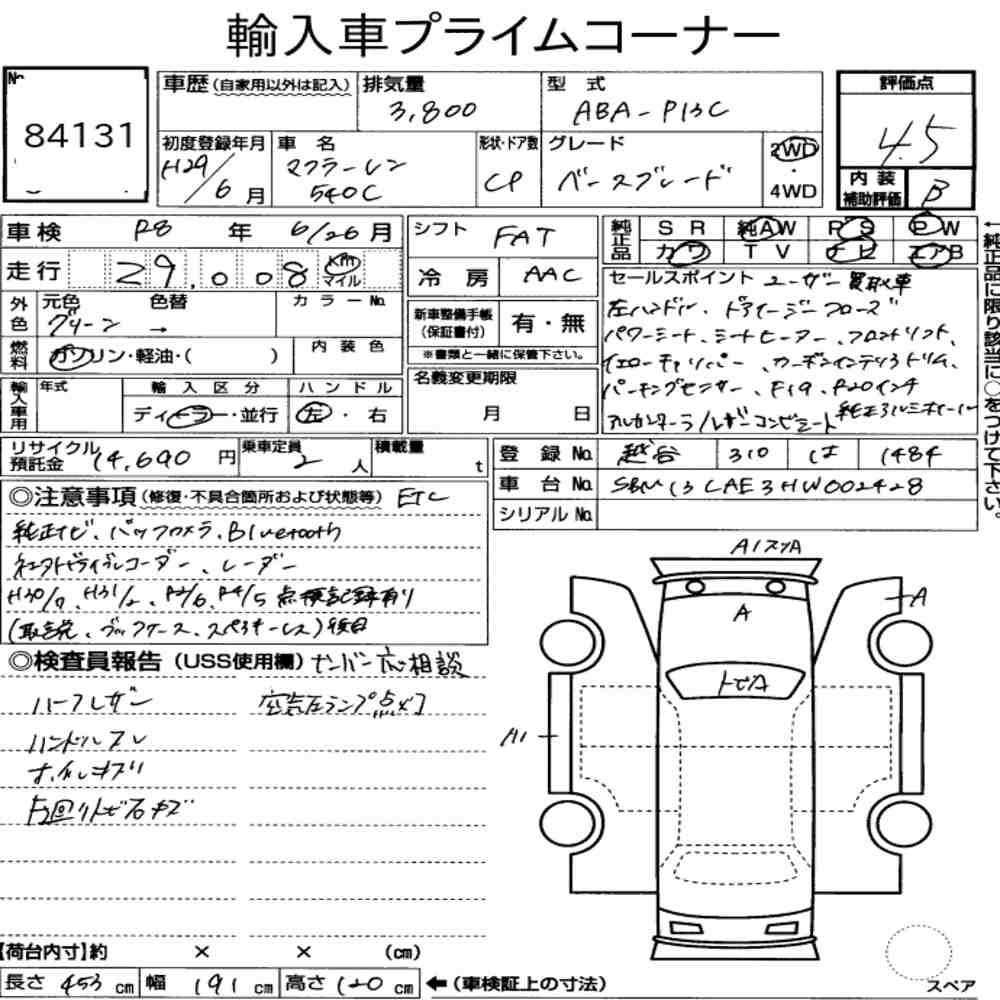 輸入車プライムコーナー
No
84131
車歴(自家用以外は記入) 排気量 型式 評価点
3,800 ABA-P13C 4.5
初度登録年月 車名 形状・ドア数 グレード 2WD・4WD
H29/6月 マクラーレン 540C CP ベースグレード
内装補助評価 B
車検 R8年 6/26月 シフト FAT
純正品 SR 純AW PS PW
カワ TV ナビ エアB
走行 29,008 km マイル 冷房 AAC
外色 元色 色替 カラーNo.
グリーン →
新車整備手帳(保証書付) 有・無
※書類と一緒に保管下さい。
燃料 ガソリン・軽油・( ) 内装色
輸入車用 年式 輸入区分 ハンドル
ディーラー・並行 左・右
名義変更期限
月 日
セールスポイント ユーザー買取車
左ハンドル、ドアイージークローズ
パワーシート、シートヒーター、フロントリフト、
イエローキャリパー、カーボンインテリアトリム、
パーキングセンサー、F19、R20インチ
アルカンターラ/レザーコンビシート 純正アルミホイール
←純正品に限り該当に○をつけて下さい。
リサイクル預託金 14,690円 乗車定員 2人 積載量 t
登録No. 越谷 310 は 1484
車台No. SBM13CAE3HW002428
シリアルNo.
◎注意事項(修復・不具合箇所および状態等) ETC
純正ナビ、バックカメラ、Bluetooth
ドライブレコーダー、レーダー
H30/7、H31/2、R2/6、R4/5 点検記録有り
(取説、ブックケース、スペアキーレス)後日
◎検査員報告(USS使用欄) ナンバー応相談
ハーフレザー 空気圧ランプ点灯
ハンドルスレ
ホイルキズ
下回りトビ石キズ
A1スリA
A
A
トビA
A1
【荷台内寸】約 × × (cm)
長さ 453 cm 幅 191 cm 高さ 120 cm ←(車検証上の寸法)
スペア